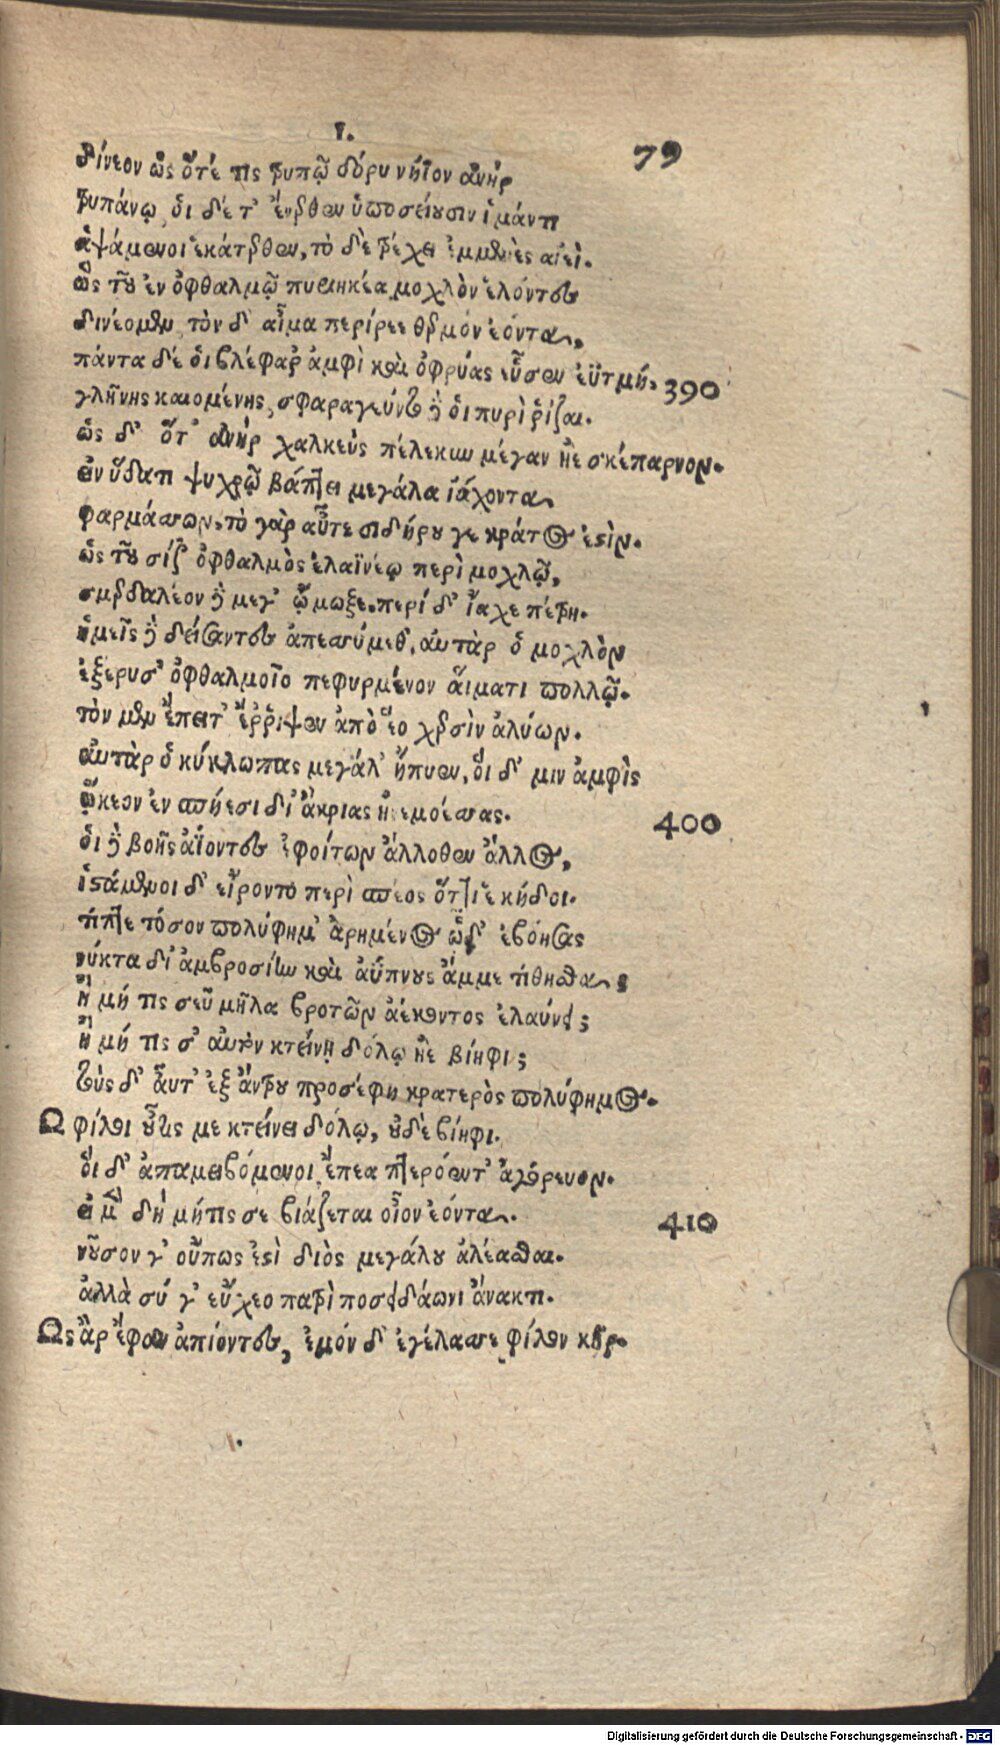 ι.
79
δίνεον ὡς ὅτέ τις τρυπῷ δόρυ νήϊον ἀνὴρ
τρυπάνῳ, ὁι δέ τ' ἔνερθεν ὑποσείουσιν ἱμάντι
ἁψάμενοι ἑκάτερθεν, τὸ δὲ τρέχει ἐμμενὲς αἰεὶ.
ὣς τοῦ ἐν ὀφθαλμῷ πυριηκέα μοχλὸν ἑλόντες
δινέομεν, τὸν δ' αἷμα περίρεε θερμὸν ἐόντα,
πάντα δέ ὁι βλέφαρ' ἀμφὶ καὶ ὀφρύας εὗσεν ἀϋτμή. 390
γλήνης καιομένης, σφαραγεῦντο δὲ ὁι πυρὶ ῥίζαι.
ὡς δ' ὅτ' ἀνὴρ χαλκεὺς πέλεκυν μέγαν ἠὲ σκέπαρνον.
ἐν ὕδατι ψυχρῷ βάπτει μεγάλα ἰάχοντα
φαρμάσσων, τὸ γὰρ αὖτε σιδήρου γε κράτος ἐστὶν.
ὣς τοῦ σίζ' ὀφθαλμὸς ἐλαϊνέῳ περὶ μοχλῷ,
σμερδαλέον δὲ μέγ' ᾤμωξε. περί δ' ἴαχε πέτρη.
ἡμεῖς δὲ δείσαντες ἀπεσσύμεθ', αὐτὰρ ὁ μοχλὸν
ἐξέρυσ' ὀφθαλμοῖο πεφυρμένον αἵματι πολλῷ.
τὸν μὲν ἔπειτ' ἔῤῥιψεν ἀπὸ ἕο χερσὶν ἀλύων.
αὐτὰρ ὁ κύκλωπας μεγάλ' ἤπυεν, ὅι δ' μιν ἀμφὶς
ᾤκεον ἐν σπήεσι δι' ἄκριας ἠνεμοέσσας. 400
ὁι δὲ βοῆς ἀΐοντες ἐφοίτων ἄλλοθεν ἄλλος,
ἱστάμενοι δ' εἴροντο περὶ σπέος ὅττι ἑ κήδοι.
τίπτε τόσον πολύφημ' ἀρημένος ὧδ' ἐβόησας
νύκτα δι' ἀμβροσίην καὶ ἀΰπνους ἄμμε τίθησθα;
ἦ μή τις σεῦ μῆλα βροτῶν ἀέκοντος ἐλαύνει;
ἦ μή τις σ' αὐτὸν κτείνῃ δόλῳ ἠὲ βίηφι;
τοὺς δ' αὖτ' ἐξ ἄντρου προσέφη κρατερὸς πολύφημος.
Ω φίλοι οὖτις με κτείνει δόλῳ, οὐδὲ βίηφι.
ὅι δ' ἀπαμειβόμενοι ἔπεα πτερόεντ' ἀγόρευον.
εἰ μὲν δὴ μήτις σε βιάζεται οἶον ἐόντα.
νοῦσον γ' οὔπως ἐστὶ διὸς μεγάλου ἀλέασθαι. 410
ἀλλὰ σύ γ' εὔχεο πατρὶ ποσειδάωνι ἄνακτι.
Ως ἂρ ἔφαν ἀπιόντες, ἐμὸν δ' ἐγέλασσε φίλον κῆρ.
Digitalisierung gefördert durch die Deutsche Forschungsgemeinschaft - DFG